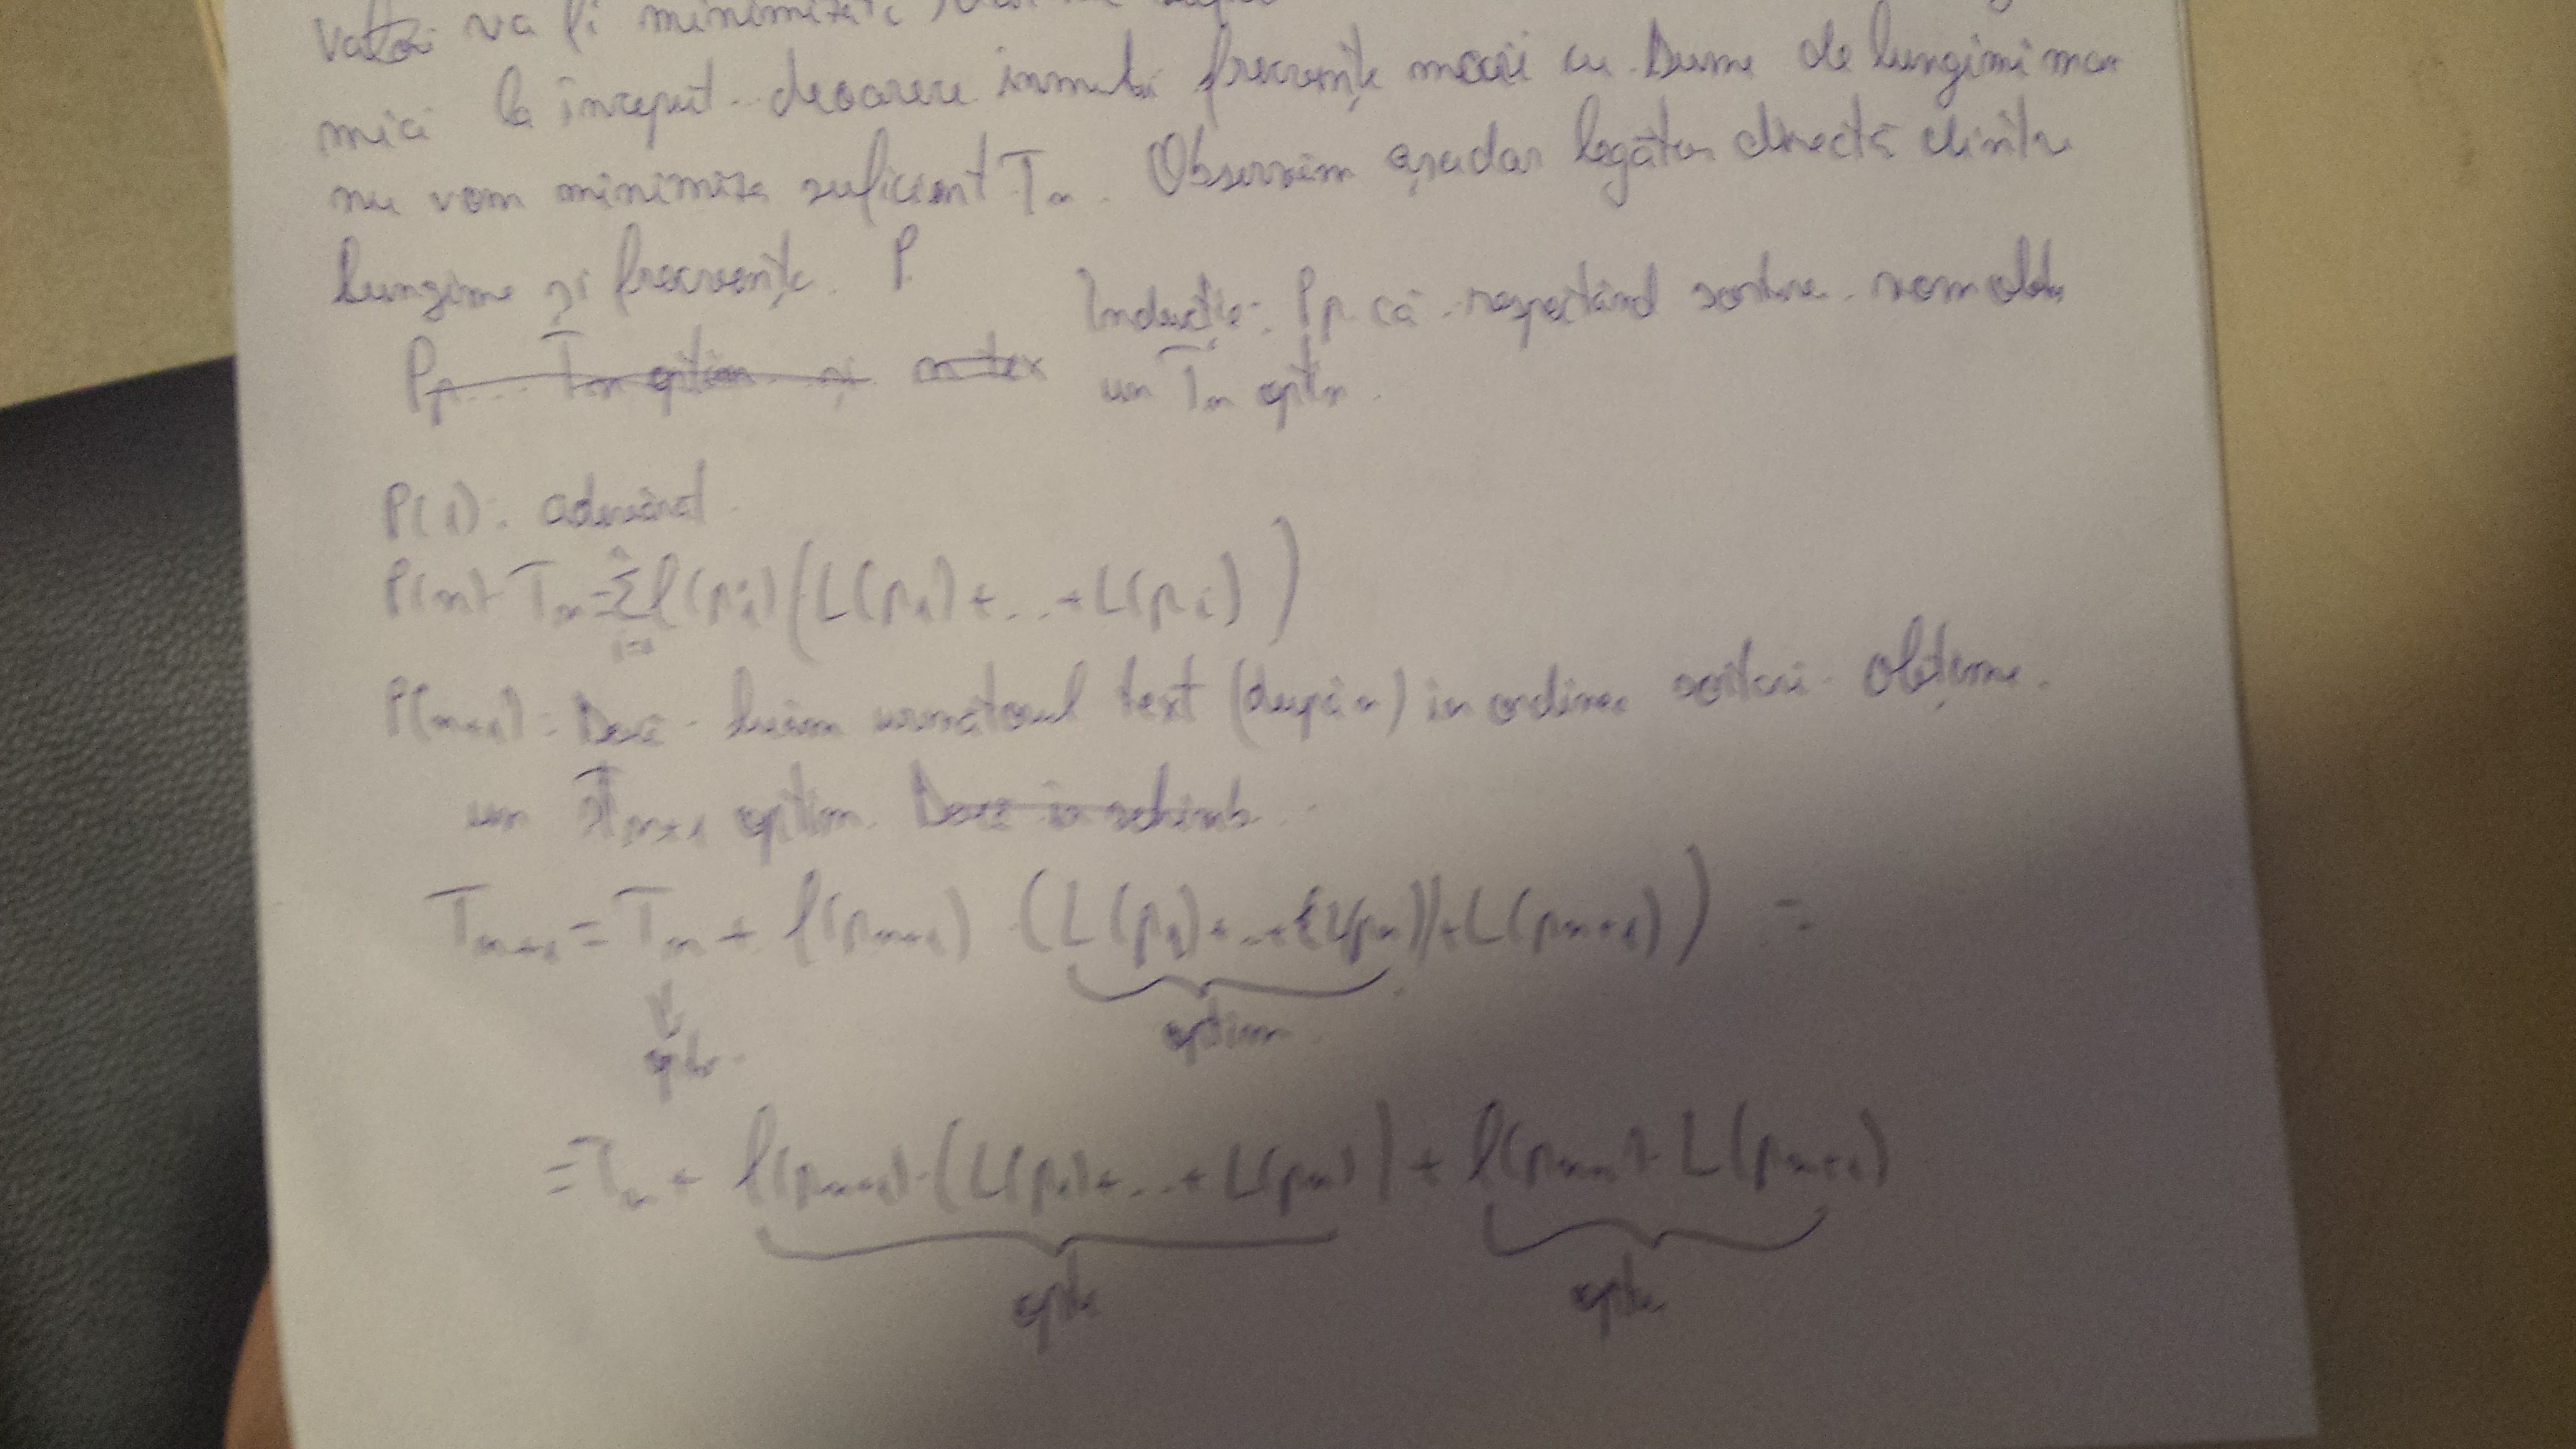 va fi minimizată
mici la început deoarece frecvențe mari cu sume de lungimi mari
nu vom minimiza suficient Tn. Observăm așadar legătura directă dintre
lungime și frecvențe. P
Inducție: Pp. că respectând sortarea vom obține
Pp. Tn optim și
un Tn optim.
P(1): adevărat.
P(n): Tn = Σ f(pi) (L(p1) + ... + L(pi))
P(n+1): Dacă luăm următorul text (după n) în ordinea sortării obținem
un Tn+1 optim. Dacă în schimb
Tn+1 = Tn + f(pn+1) · (L(p1) + ... + L(pn)) + L(pn+1)) =
optim
optim
= Tn + f(pn+1) · (L(p1) + ... + L(pn)) + f(pn+1) · L(pn+1)
optim optim